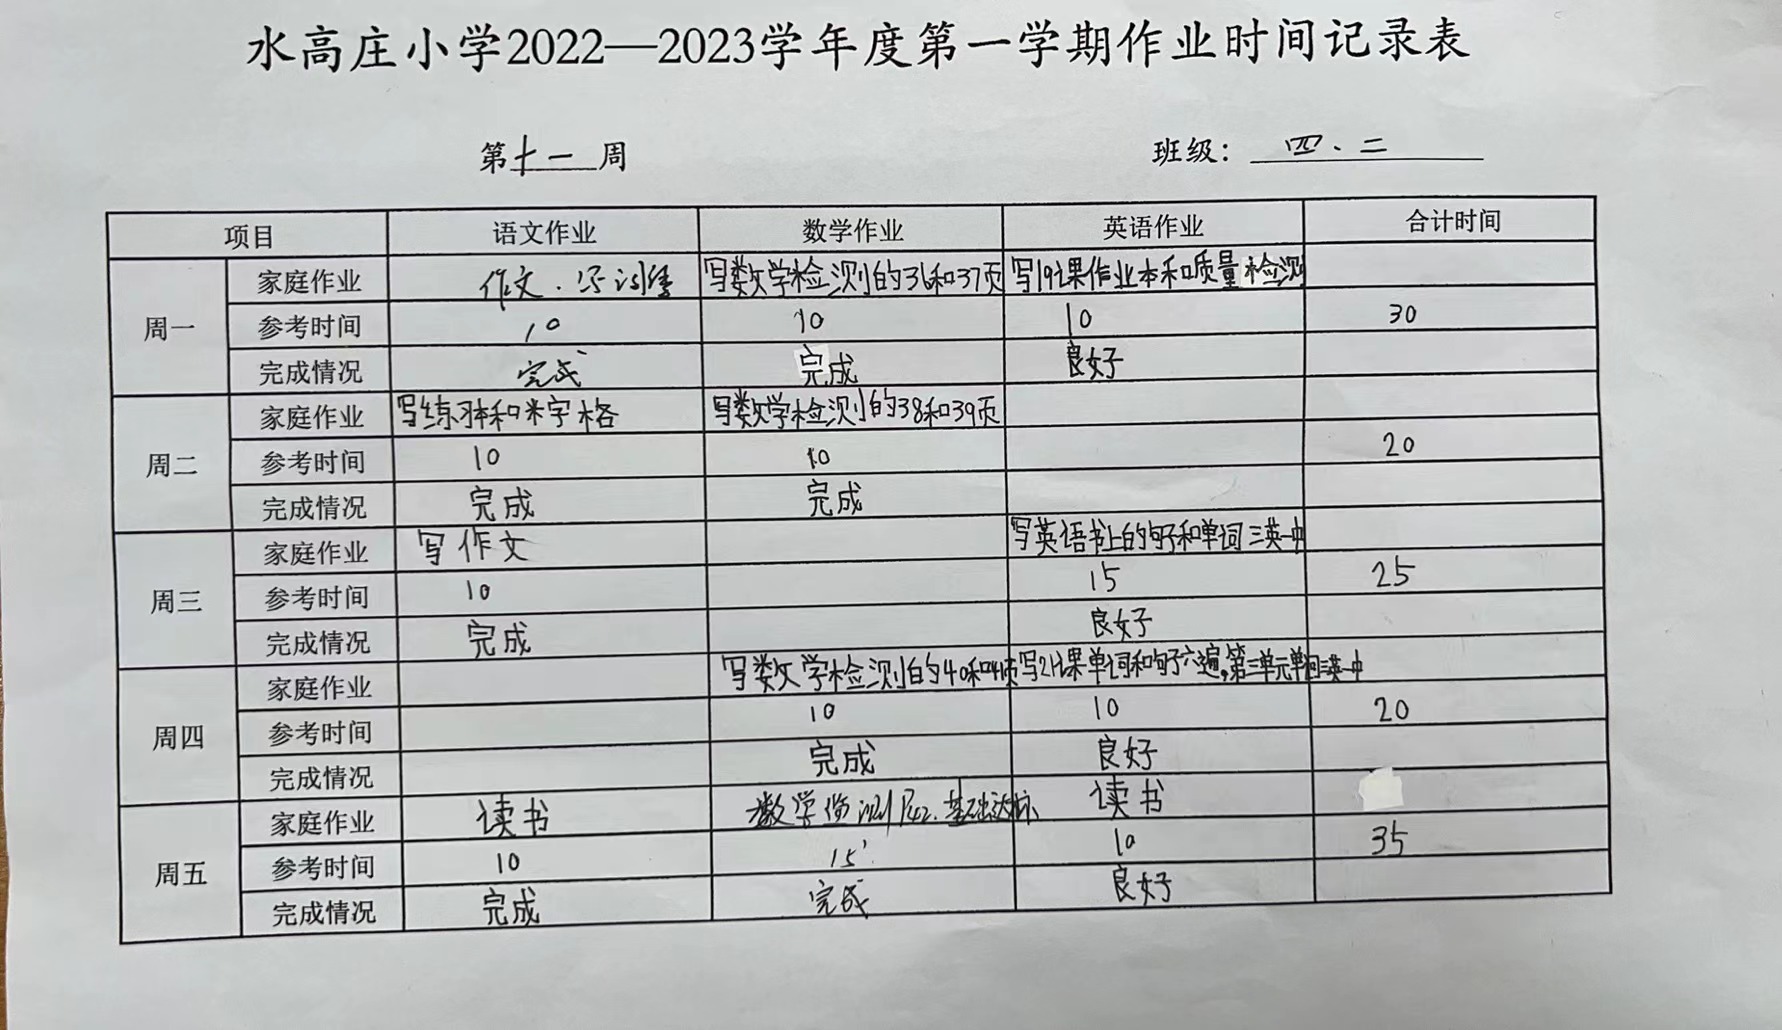 水高庄小学2022—2023学年度第一学期作业时间记录表
第十一周 班级：四.二
项目 语文作业 数学作业 英语作业 合计时间
周一 家庭作业 作文. 写数学检测的36和37页 写19课作业本和质量检测
参考时间 10 10 10 30
完成情况 完成 完成 良好
周二 家庭作业 写练习本和米字格 写数学检测的38和39页
参考时间 10 10 20
完成情况 完成 完成
周三 家庭作业 写作文 写英语书上的句子和单词三英一中
参考时间 10 15 25
完成情况 完成 良好
周四 家庭作业 写数学检测的40和41页 写21课单词和句子六遍,第三单元单词三英一中
参考时间 10 10 20
完成情况 完成 良好
周五 家庭作业 读书 数学质测P42.基础达标 读书
参考时间 10 15' 10 35
完成情况 完成 完成 良好